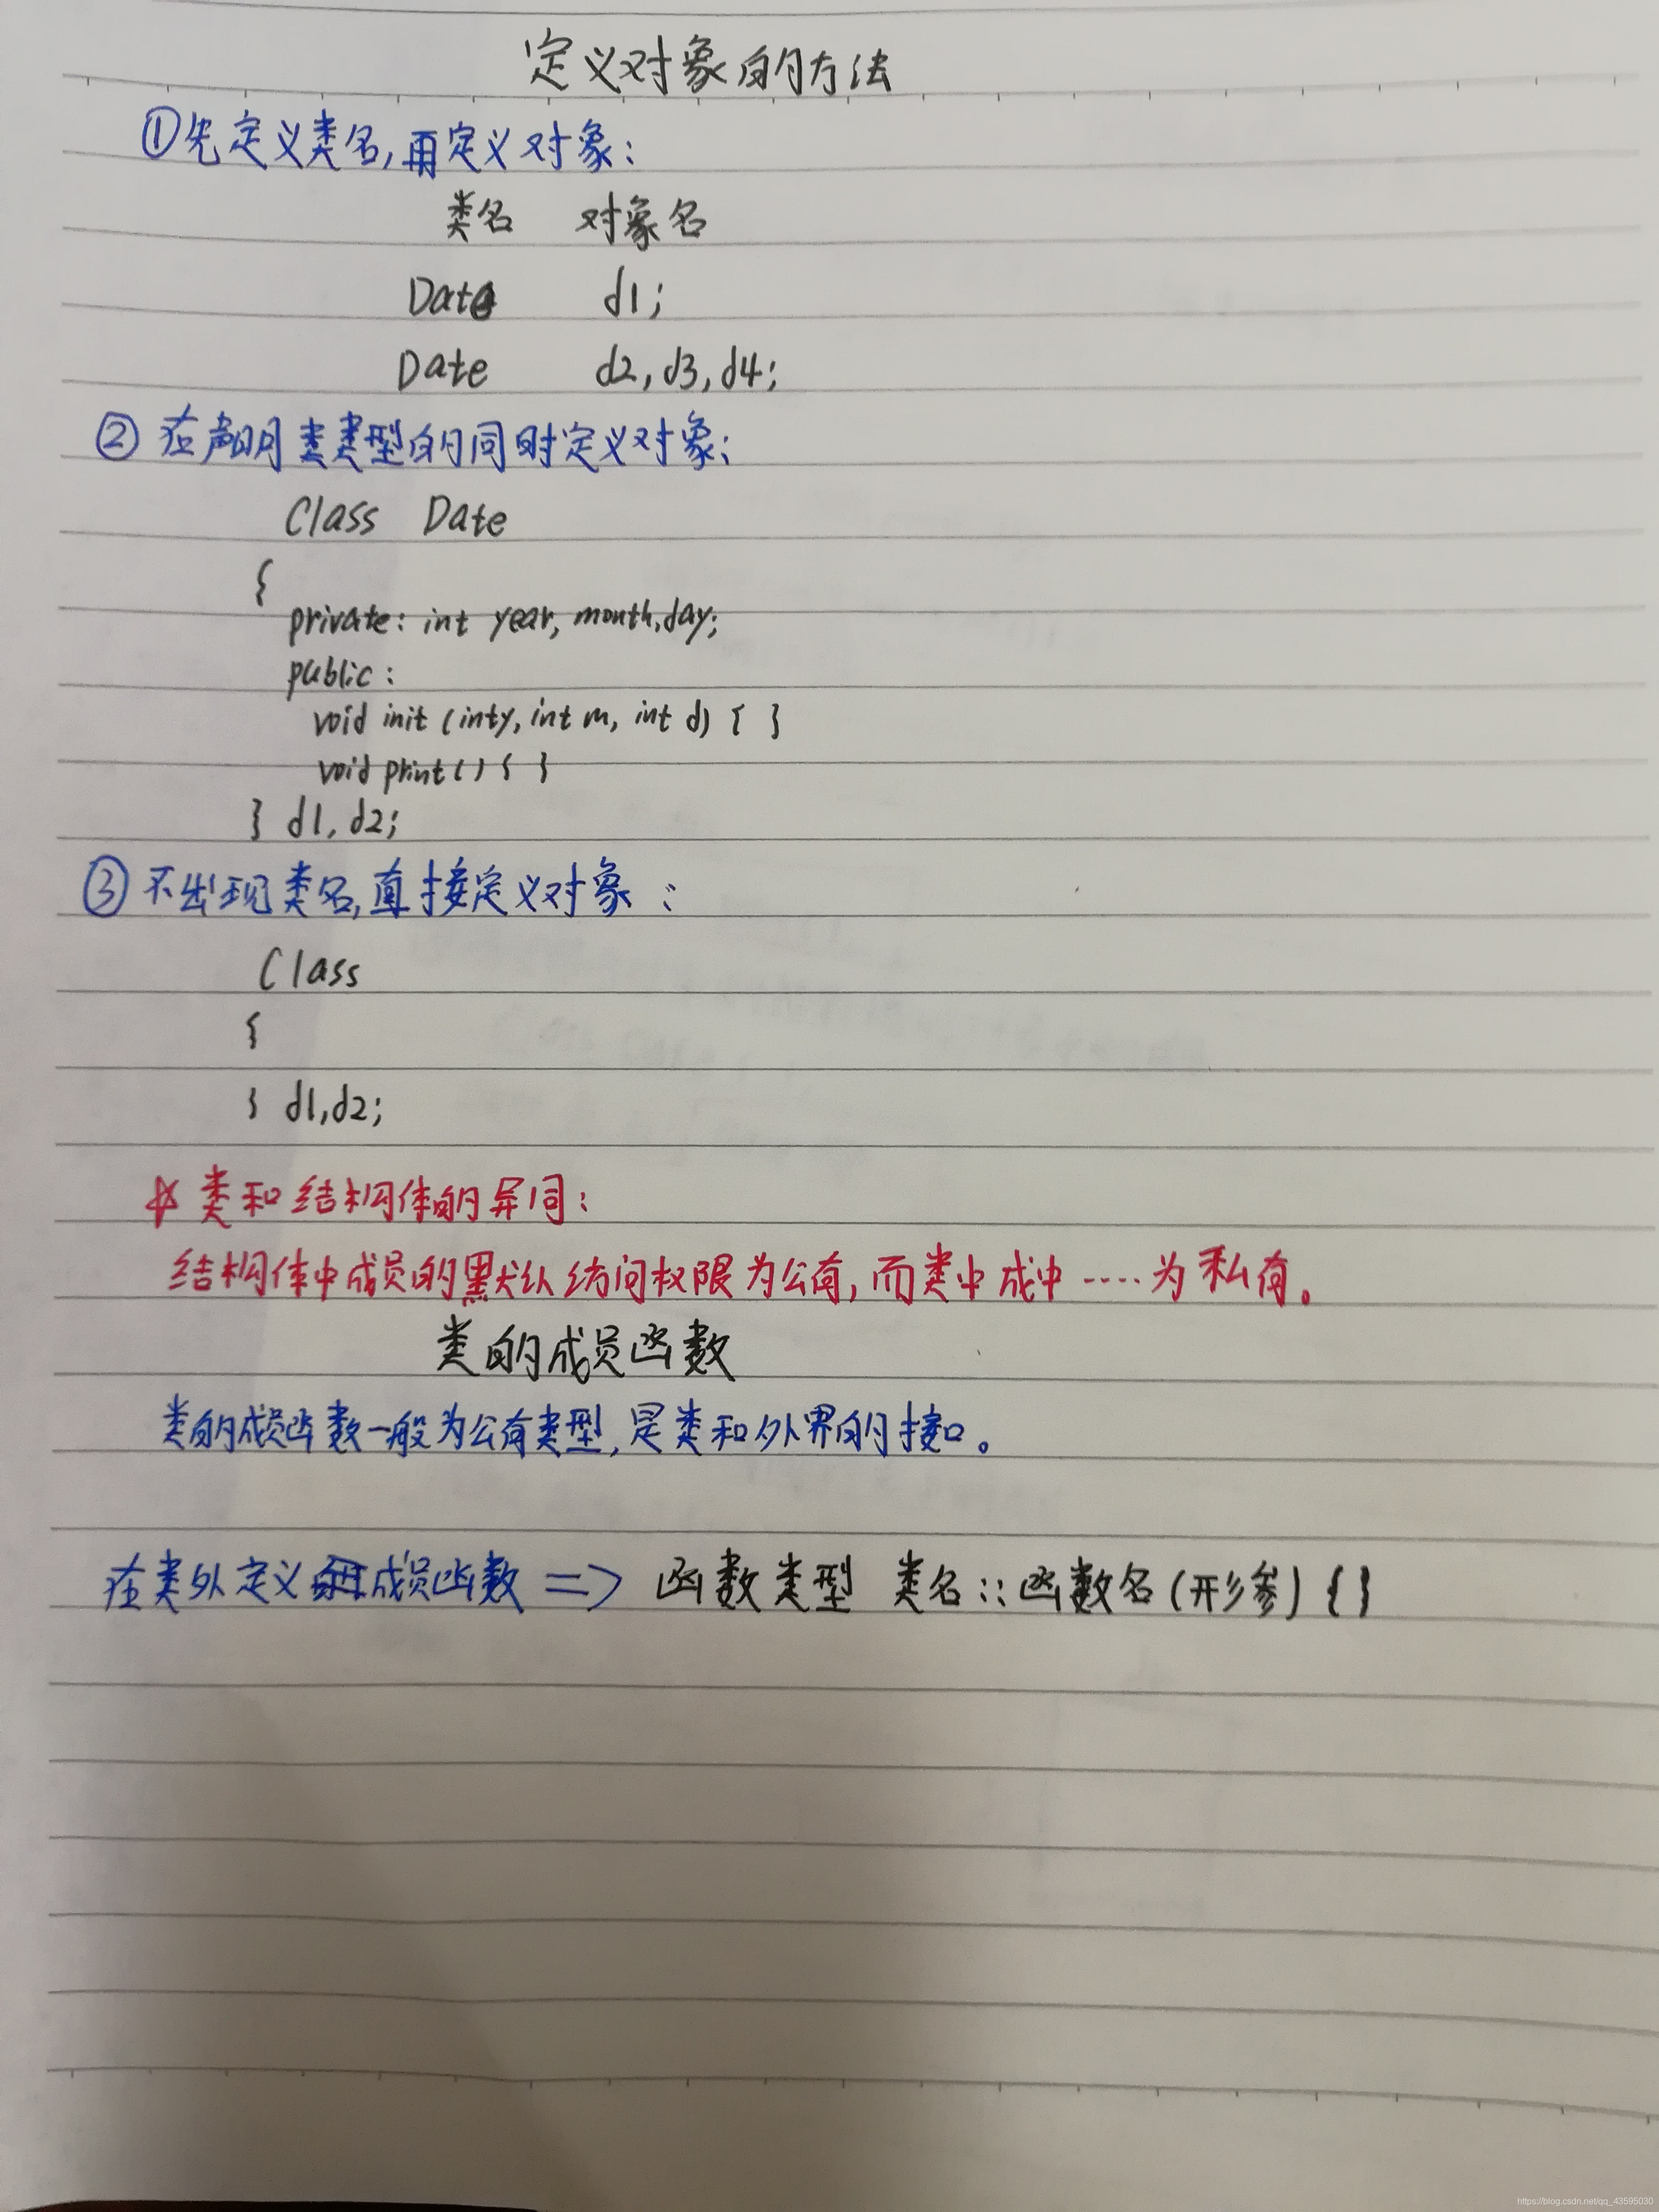 定义对象的方法
①先定义类名,再定义对象:
类名 对象名
Date d1;
Date d2,d3,d4;
② 在声明类类型的同时定义对象:
Class Date
{
private: int year, month,day;
public:
void init (inty, int m, int d) { }
void print() { }
} d1, d2;
③ 不出现类名,直接定义对象:
Class
{
} d1,d2;
☆ 类和结构体的异同:
结构体中成员的默认访问权限为公有,而类中成中 ····· 为私有。
类的成员函数
类的成员函数一般为公有类型,是类和外界的接口。
在类外定义成员函数 => 函数类型 类名::函数名(形参) { }
https://blog.csdn.net/qq_43595030